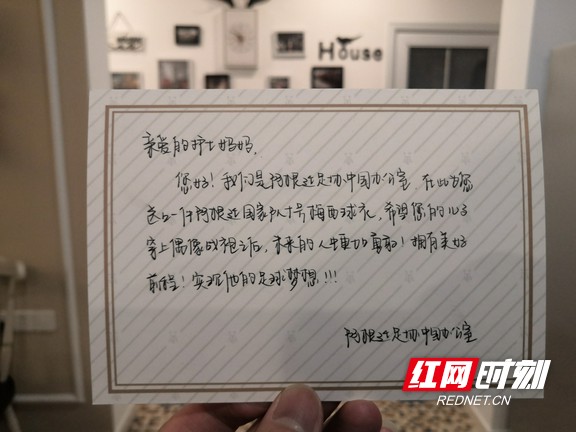 House
亲爱的护士妈妈，
您好！我们是阿根廷足协中国办公室，在此为您
送上一件阿根廷国家队十号梅西球衣，希望您的儿子
穿上偶像战袍之后，未来的人生更加勇敢！拥有美好
前程！实现他的足球梦想！！！
阿根廷足协中国办公室
红网时刻
REDNET.CN